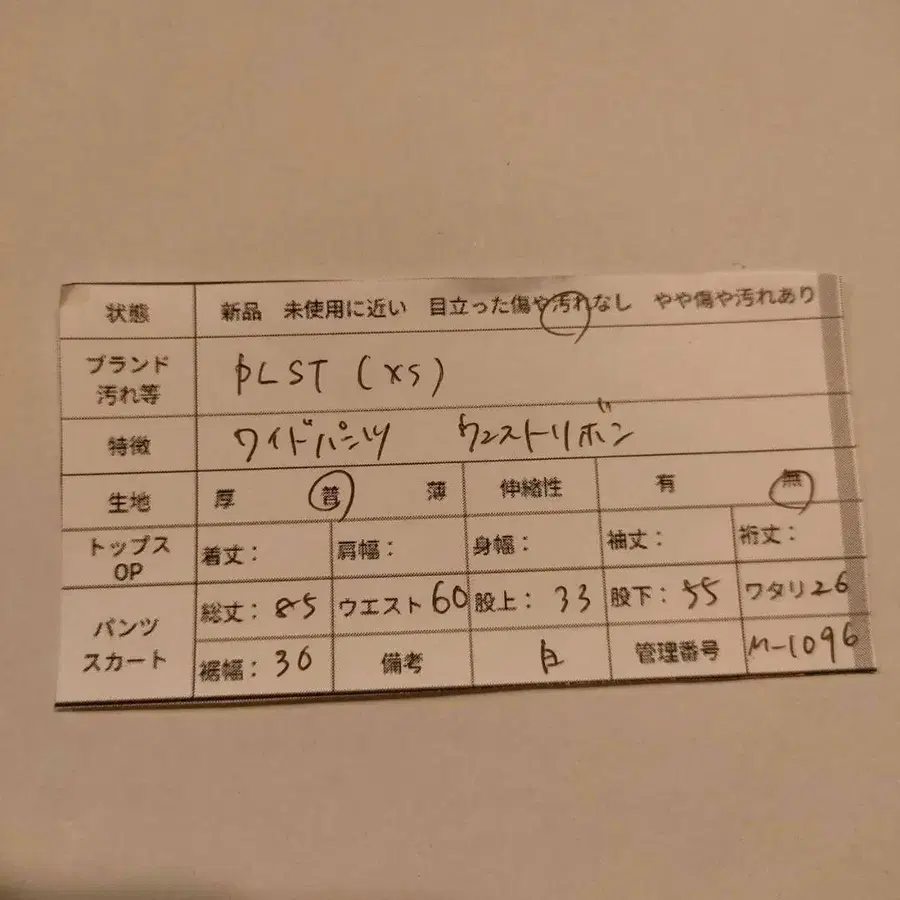 状態 新品 未使用に近い 目立った傷や汚れなし やや傷や汚れあり
ブランド 汚れ等 PLST (XS)
特徴 ワイドパンツ ウエストリボン
生地 厚 普 薄 伸縮性 有 無
トップス OP 着丈: 肩幅: 身幅: 袖丈: 裄丈:
パンツ スカート 総丈: 85 ウエスト 60 股上: 33 股下: 55 ワタリ 26
裾幅: 30 備考 白 管理番号 M-1096